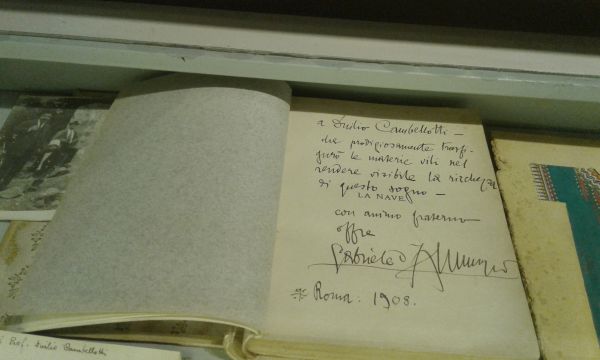 a Duilio Cambellotti –
che prodigiosamente trasfi-
gurò le materie vili nel
rendere visibile la ricchezza
di questo sogno –
LA NAVE
con animo fraterno
offre
Gabriele d'Annunzio
Roma. 1908.
Prof. Duilio Cambellotti